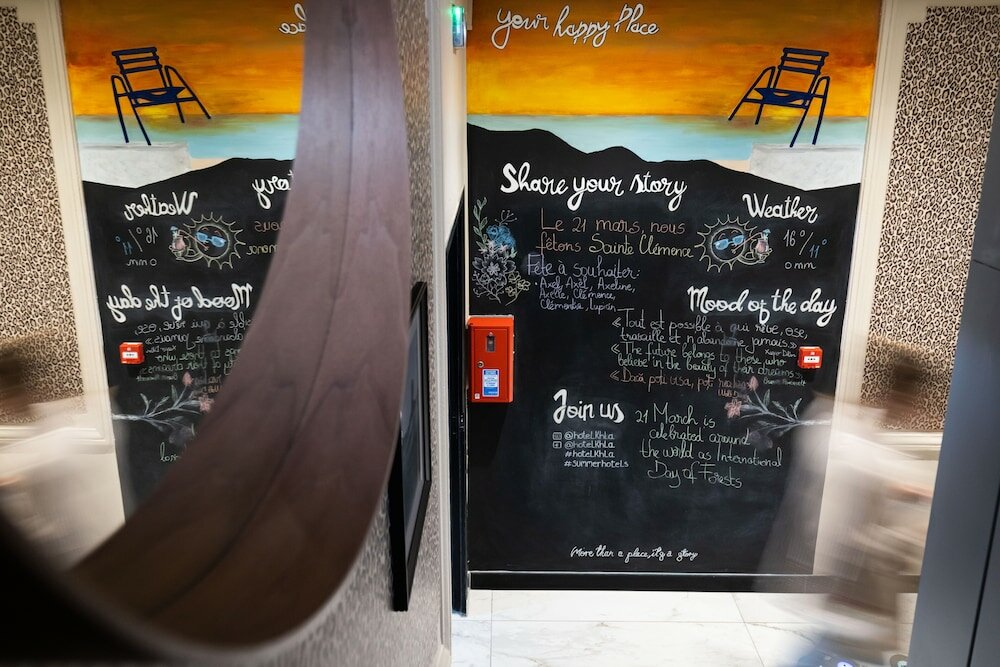 your happy Place
Share your story
Le 21 mars, nous
fêtons Sainte Clémence
Fête à souhaiter:
Axel, Axel, Axeline,
Axelle, Clémence,
Clémentia, Lupicin
Weather
16°/11°
0 mm
Mood of the day
« Tout est possible à qui rêve, ose,
travaille et n'abandonne jamais. »
« The future belongs to those who
believe in the beauty of their dreams »
« Dacă poți visa, poți
Join us
@hotelkhla
@hotelkhla
#hotelkhla
#summerhotels
21 March is
celebrated around
the world as International
Day of Forests
More than a place, it's a story